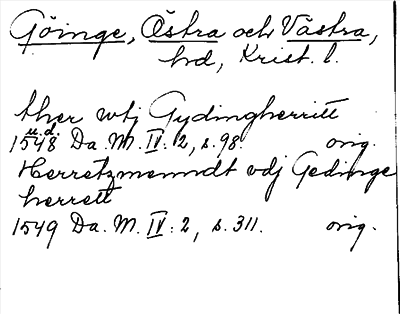 Göinge, Östra och Västra,
hd, Krist. l.
ther wtj Gydingherritt
u.d.
1548 Da. M. IV: 2, s. 98. orig.
Herretzmenndt vdj Gedinge
herrett
1549 Da. M. IV: 2, s. 311. orig.